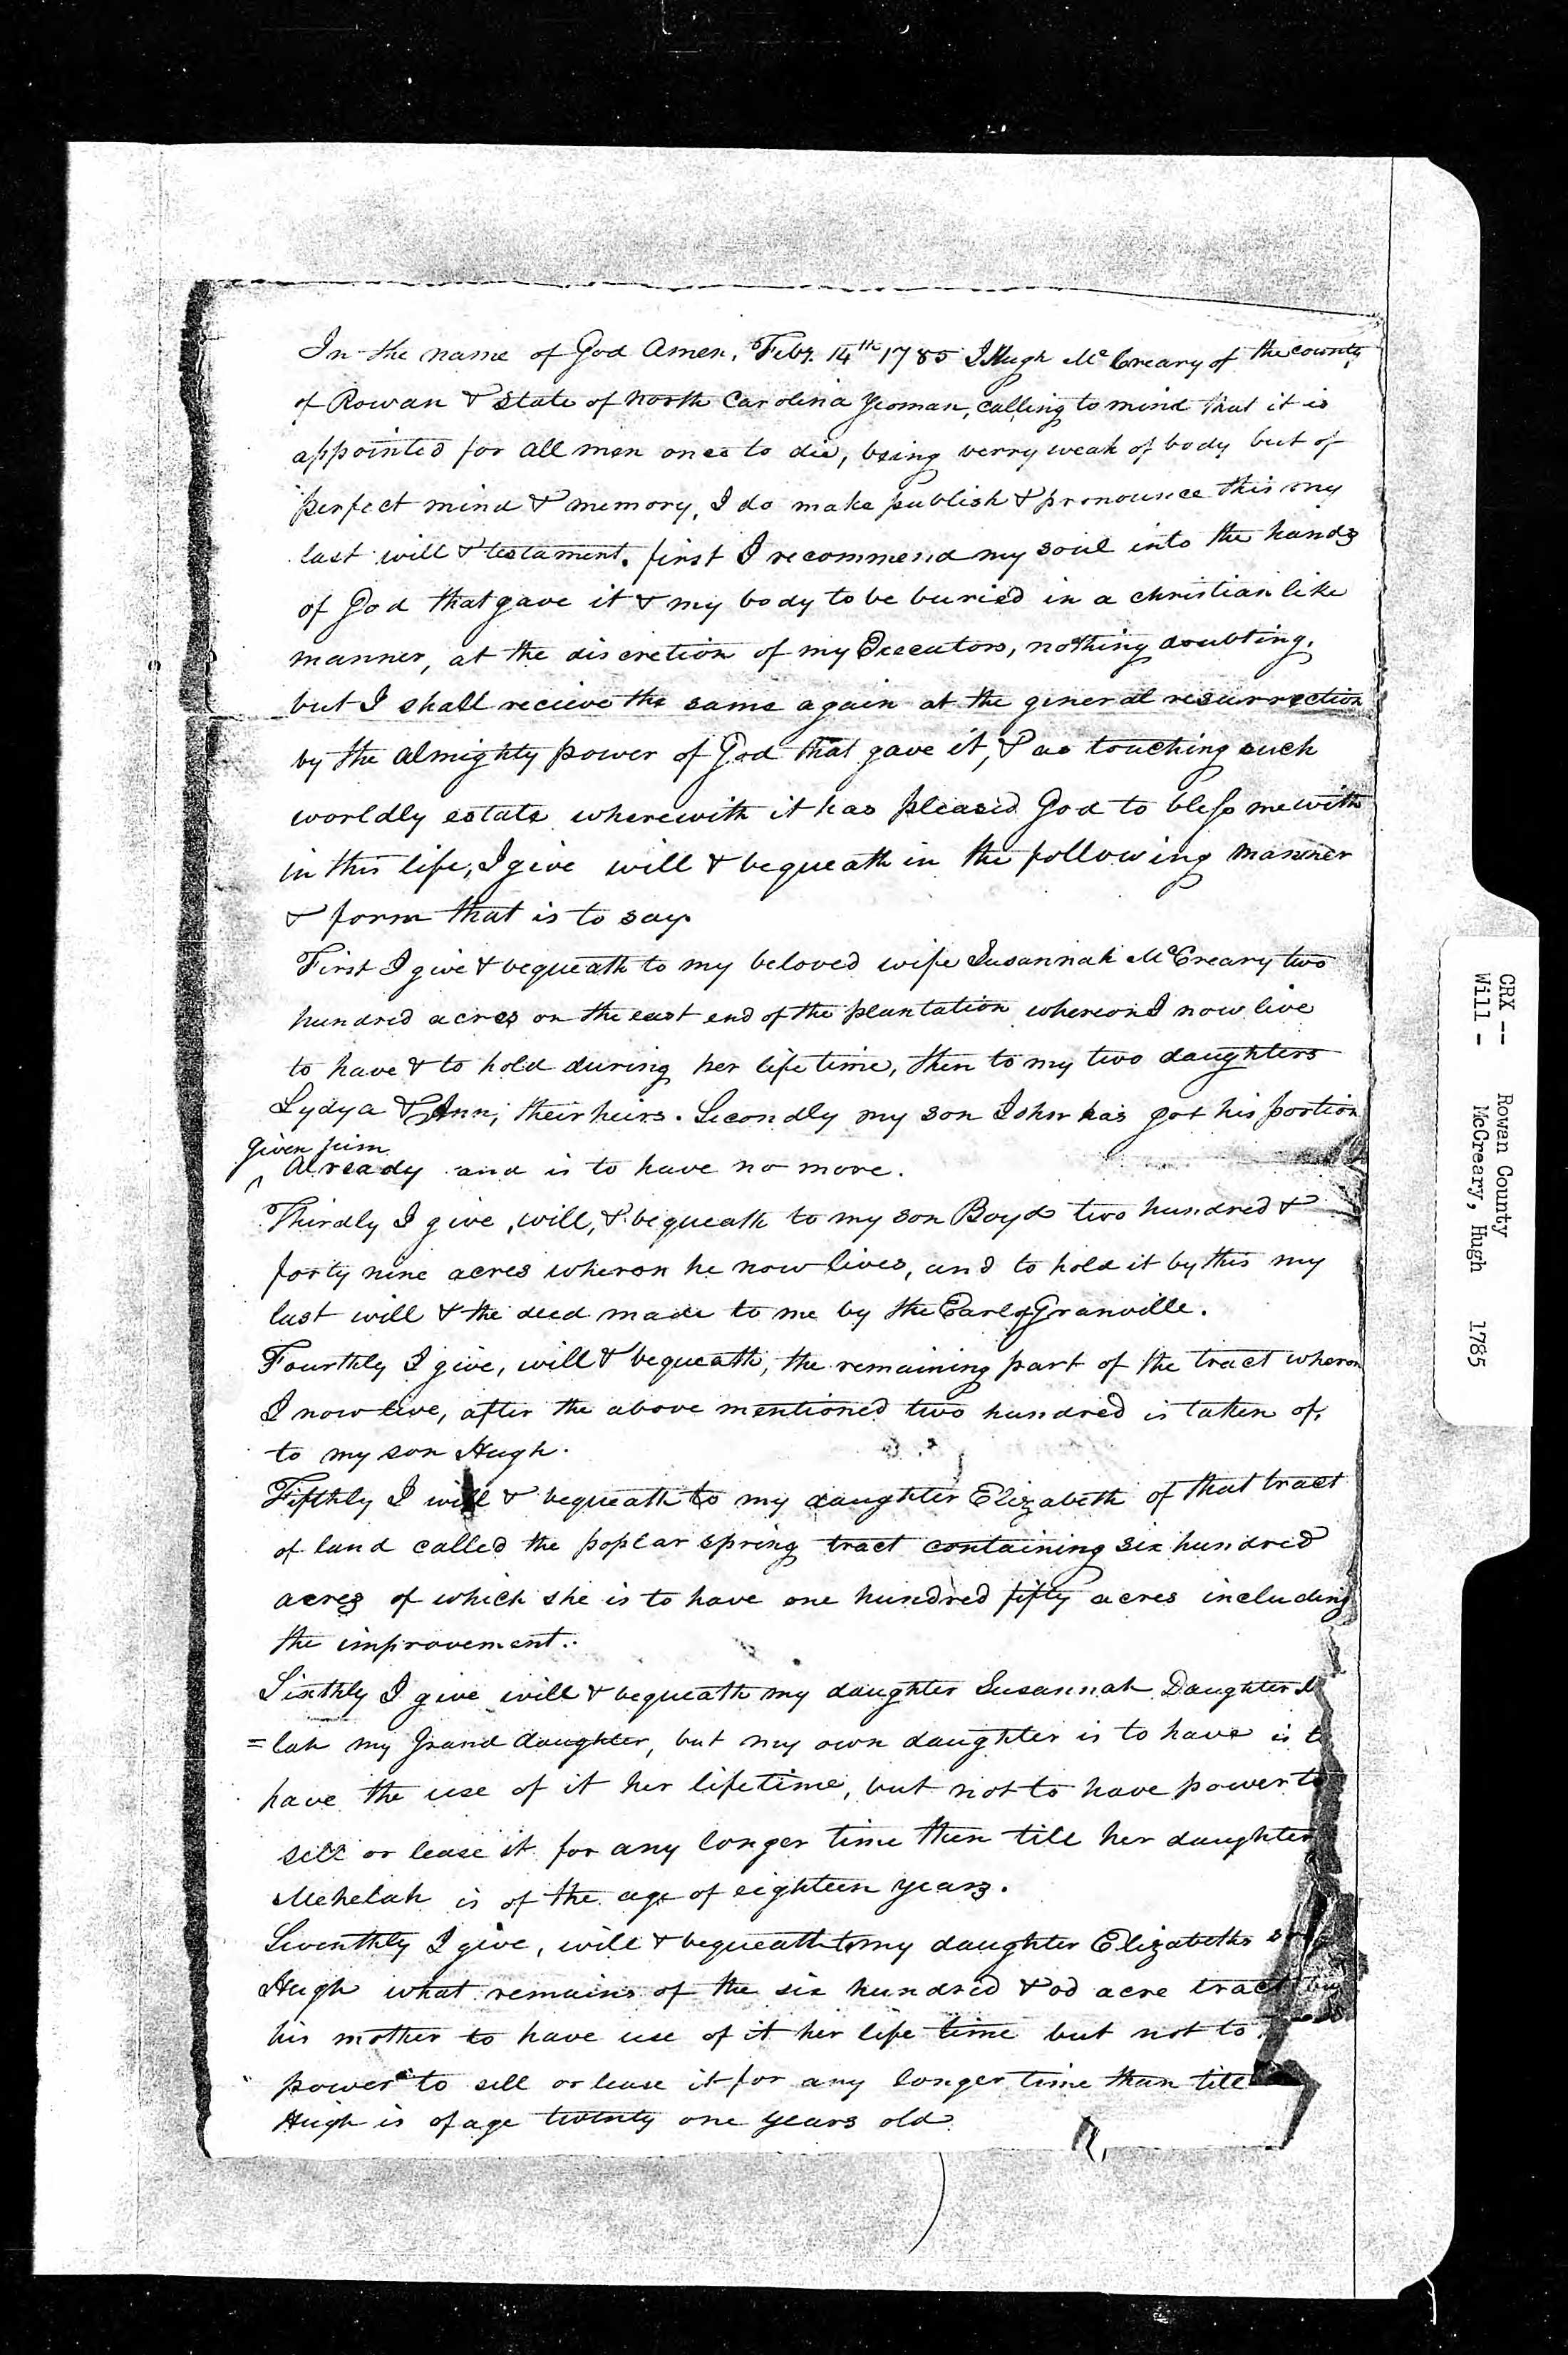 In the name of God Amen, Feby. 14th 1785 I Hugh McCreary of the county
of Rowan & State of North Carolina Yeoman, calling to mind that it is
appointed for all men once to die, being verry weak of body but of
perfect mind & memory, I do make publish & pronounce this my
last will & testament. first I recommend my soul into the hands
of God that gave it & my body to be buried in a christian like
manner, at the discretion of my Executors, nothing doubting,
but I shall recieve the same again at the general resurrection
by the Almighty power of God that gave it, & as touching such
worldly estate wherewith it has pleased God to bless me with
in this life, I give will & bequeath in the following manner
& form that is to say.
First I give & bequeath to my beloved wife Susannah McCreary two
hundred acres on the east end of the plantation whereon I now live
to have & to hold during her life time, then to my two daughters
Lydya & Ann, their heirs. Secondly my son John has got his portion
given him
^ Already and is to have no more.
Thirdly I give, will, & bequeath to my son Boyd two hundred &
forty nine acres wheron he now lives, and to hold it by this my
last will & the deed made to me by the Earl of Granville.
Fourthly I give, will & bequeath, the remaining part of the tract wheron
I now live, after the above mentioned two hundred is taken of,
to my son Hugh.
Fifthly I will & bequeath to my daughter Elizabeth of that tract
of land called the poplar spring tract containing six hundred
acres of which she is to have one hundred fifty acres including
the improvement.
Sixthly I give will & bequeath my daughter Susannah Daughter
=lah my Grand daughter, but my own daughter is to have is to
have the use of it her lifetime, but not to have power to
sell or lease it for any longer time then till her daughter
Mehelah is of the age of eighteen years.
Seventhly I give, will & bequeath to my daughter Elizabeths son
Hugh what remains of the six hundred & od acre tract
his mother to have use of it her life time but not to
power to sell or lease it for any longer time than till
Hugh is of age twenty one years old.
CRX -- Rowan County
Will - McCreary, Hugh 1785